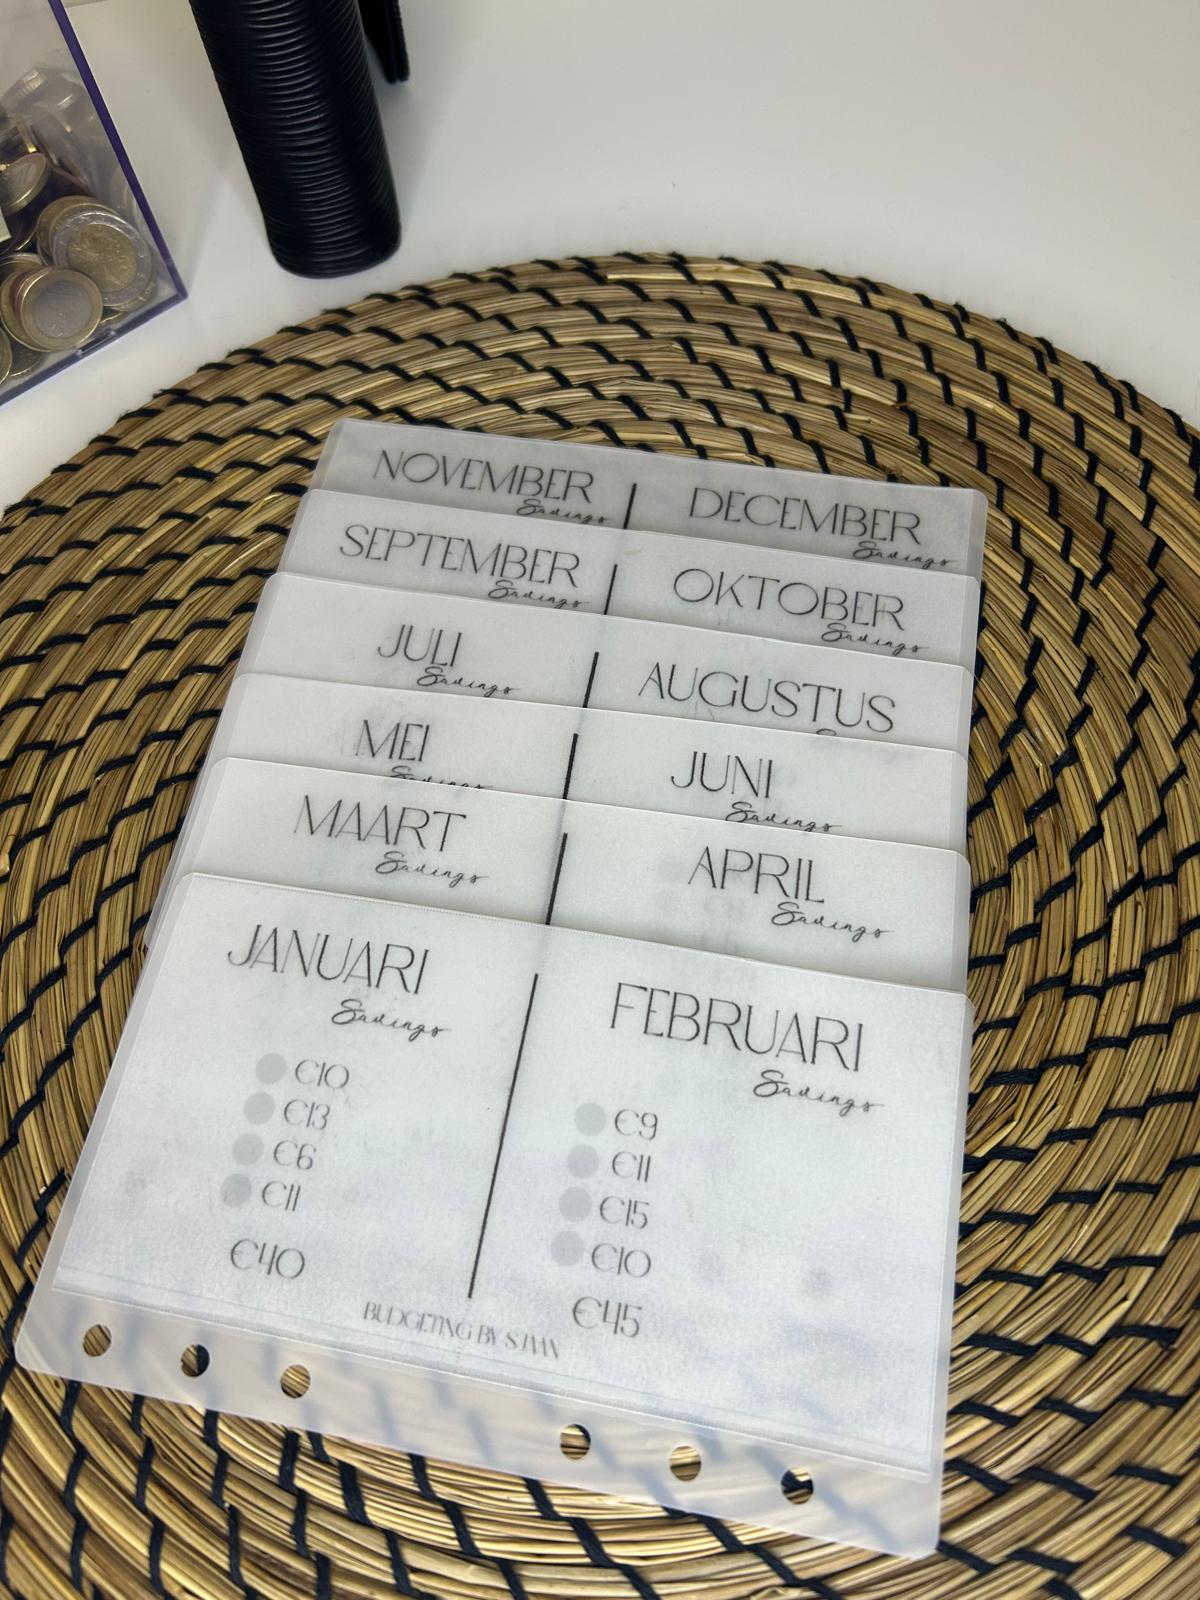 NOVEMBER
Savings
DECEMBER
Savings
SEPTEMBER
Savings
OKTOBER
Savings
JULI
Savings
AUGUSTUS
MEI
Savings
JUNI
Savings
MAART
Savings
APRIL
Savings
JANUARI
Savings
€10
€13
€6
€11
€40
FEBRUARI
Savings
€9
€11
€15
€10
€45
BUDGETING BY